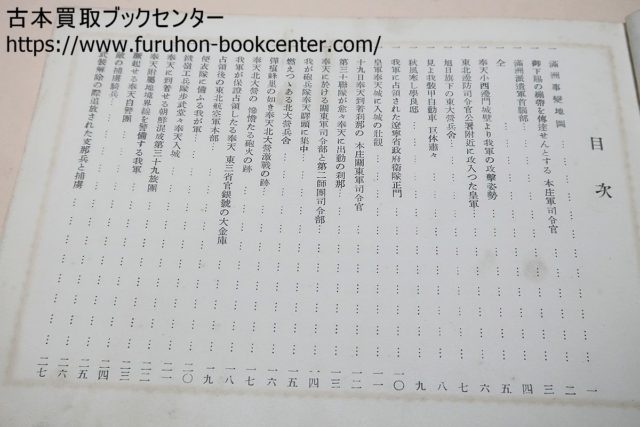 古本買取ブックセンター
https://www.furuhon-bookcenter.com/
目次
滿洲事變地圖 一
御下賜の繃帶を傳達せんとする 本庄軍司令官 二
滿洲派遣軍首腦部 三
仝 四
奉天小西邊門城壁より我軍の攻擊姿勢 五
東北邊防司令官公署附近に攻入つた皇軍 六
旭日旗下の東大營兵舍 七
見よ裝甲自動車 巨体肅々 八
秋風寒し學良邸 九
我軍に占領された遼寧省政府衛隊正門 一〇
皇軍奉天城に入城の壯觀 一一
十九日奉天到着刹那の 本庄關東軍司令官 一二
第三十聯隊が愈々奉天に出動の刹那 一三
奉天に於ける關東軍司令部と第二師團司令部 一四
我が砲兵隊奉天驛頭に集中
燃えつゝある北大營兵舍 一五
蜂巢の如き奉天北大營激戰の跡 一六
奉天北大營の 慘憺たる砲火の跡 一七
我軍が保證占領したる奉天 東三省官銀號の大金庫 一八
占領後の東北航空軍本部 一九
便衣隊に備ふる我が軍 二〇
鐵嶺工兵隊步武堂々奉天入城 二一
奉天に到着せる朝鮮混成第三十九旅團 二二
奉天附屬地境界線を警備する我軍 二三
崛起せる奉天自警團 二四
の捕虜騎兵 二五
武裝解除の際追放された支那兵と捕虜 二六
二七